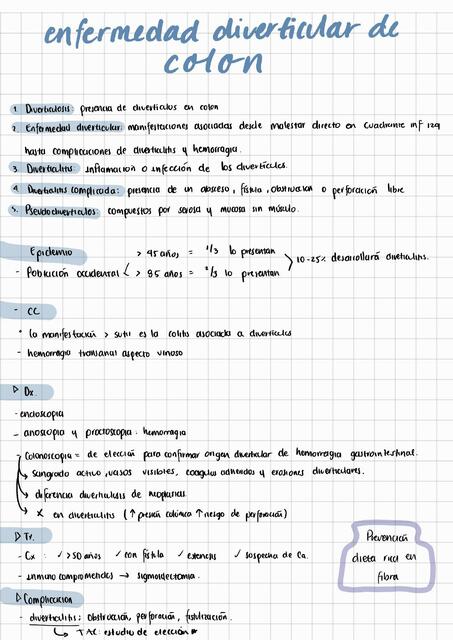 enfermedad diverticular de
colon
1. Diverticulosis: presencia de diverticulos en colon
2. Enfermedad diverticular: manifestaciones asociadas desde malestar directo en cuadrante inf izq
hasta complicaciones de diverticulitis y hemorragia.
3. Diverticulitis: inflamacion o infección de los diverticulos.
4. Diverticulitis complicada: presencia de un absceso, fístula, obstruccion o perforación libre
5. Pseudodiverticulos: compuestos por serosa y mucosa sin músculo.
Epidemio
> 45 años = 1/3 lo presentan
- Población occidental < > 85 años = 2/3 lo presentan > 10-25% desarrollará diverticulitis.
- CC
* la manifestación > sutil es la colitis asociada a diverticulos
- hemorragia transanal aspecto vinoso
▷ Dx.
- endoscopia
- anoscopia y proctoscopia: hemorragia
- Colonoscopia = de elección para confirmar origen diverticular de hemorragia gastrointestinal.
↳ sangrado activo, vasos visibles, coagulos adheridos y erosiones diverticulares.
↳ diferencia diverticulosis de neoplasias
↳ X en diverticulitis (↑ presión colónica ↑ riesgo de perforación)
▷ Tx.
- Cx: ✓ >50 años ✓ con fístula ✓ estenosis ✓ sospecha de Ca.
- inmuno comprometidos → sigmoidectomia.
Prevención
dieta rica en
fibra
▷ Complicacion
- diverticulitis: obstrucción, perforación, fistulización.
↳ TAC: estudio de elección *